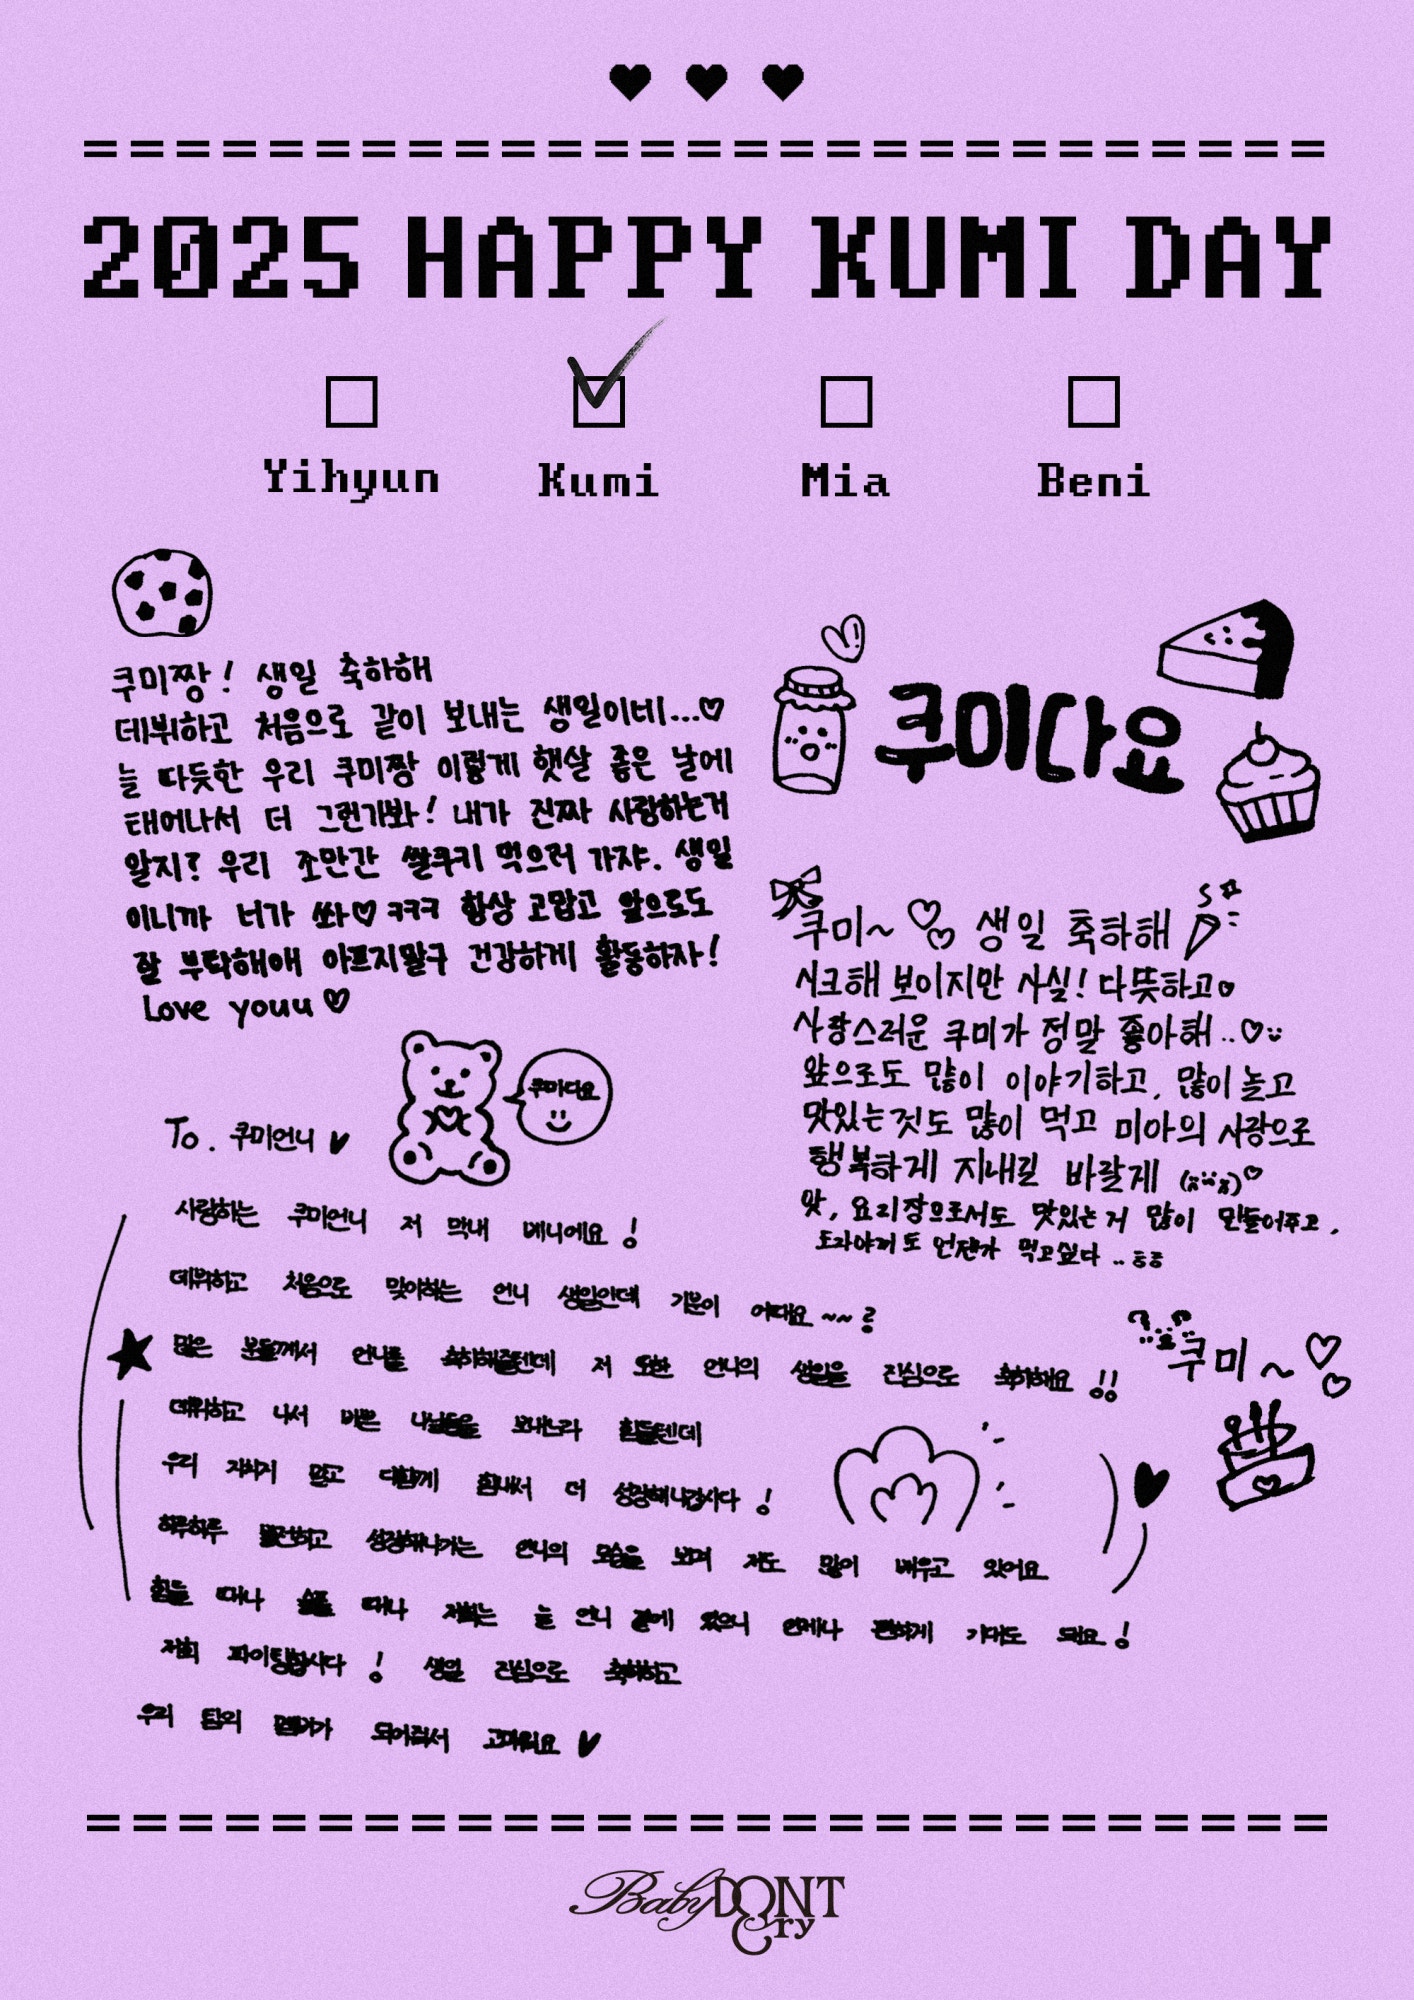 2025 HAPPY KUMI DAY
Yihyun Kumi Mia Beni
쿠미짱! 생일 축하해
데뷔하고 처음으로 같이 보내는 생일이네...♡
늘 따듯한 우리 쿠미짱 이렇게 햇살 좋은 날에
태어나서 더 그런가봐! 내가 진짜 사랑하는거
알지? 우리 조만간 쌀쿠키 먹으러 가쟈. 생일
이니까 너가 쏴♡ ㅋㅋㅋ 항상 고맙고 앞으로도
잘 부탁해애 아프지말구 건강하게 활동하자!
Love youu ♡
쿠미다요
쿠미~♡♡ 생일 축하해
시크해 보이지만 사실! 다뜻하고♡
사랑스러운 쿠미가 정말 좋아해..♡
앞으로도 많이 이야기하고, 많이 놀고
맛있는 것도 많이 먹고 미아의 사랑으로
행복하게 지내길 바랄게
맞, 요리장으로서도 맛있는 거 많이 만들어주고,
도라야끼도 언젠가 먹고싶다 ..ㅎㅎ
쿠미~♡♡
쿠미다요
To. 쿠미언니 ♥
사랑하는 쿠미언니 저 막내 베니에요!
데뷔하고 처음으로 맞이하는 언니 생일인데 기분이 어때요~~?
많은 분들께서 언니를 축하해줄텐데 저 또한 언니의 생일을 진심으로 축하해요!!
데뷔하고 나서 바쁜 나날들을 보내느라 힘들텐데
우리 지치지 말고 다함께 힘내서 더 성장해나갑시다!
하루하루 발전하고 성장해나가는 언니의 모습을 보며 저도 많이 배우고 있어요
힘들 때나 슬플 때나 저희는 늘 언니 곁에 있으니 언제나 편하게 기대도 돼요!
저희 파이팅합시다! 생일 진심으로 축하하고
우리 팀의 멤버가 되어줘서 고마워요 ♥
Baby DONT Cry